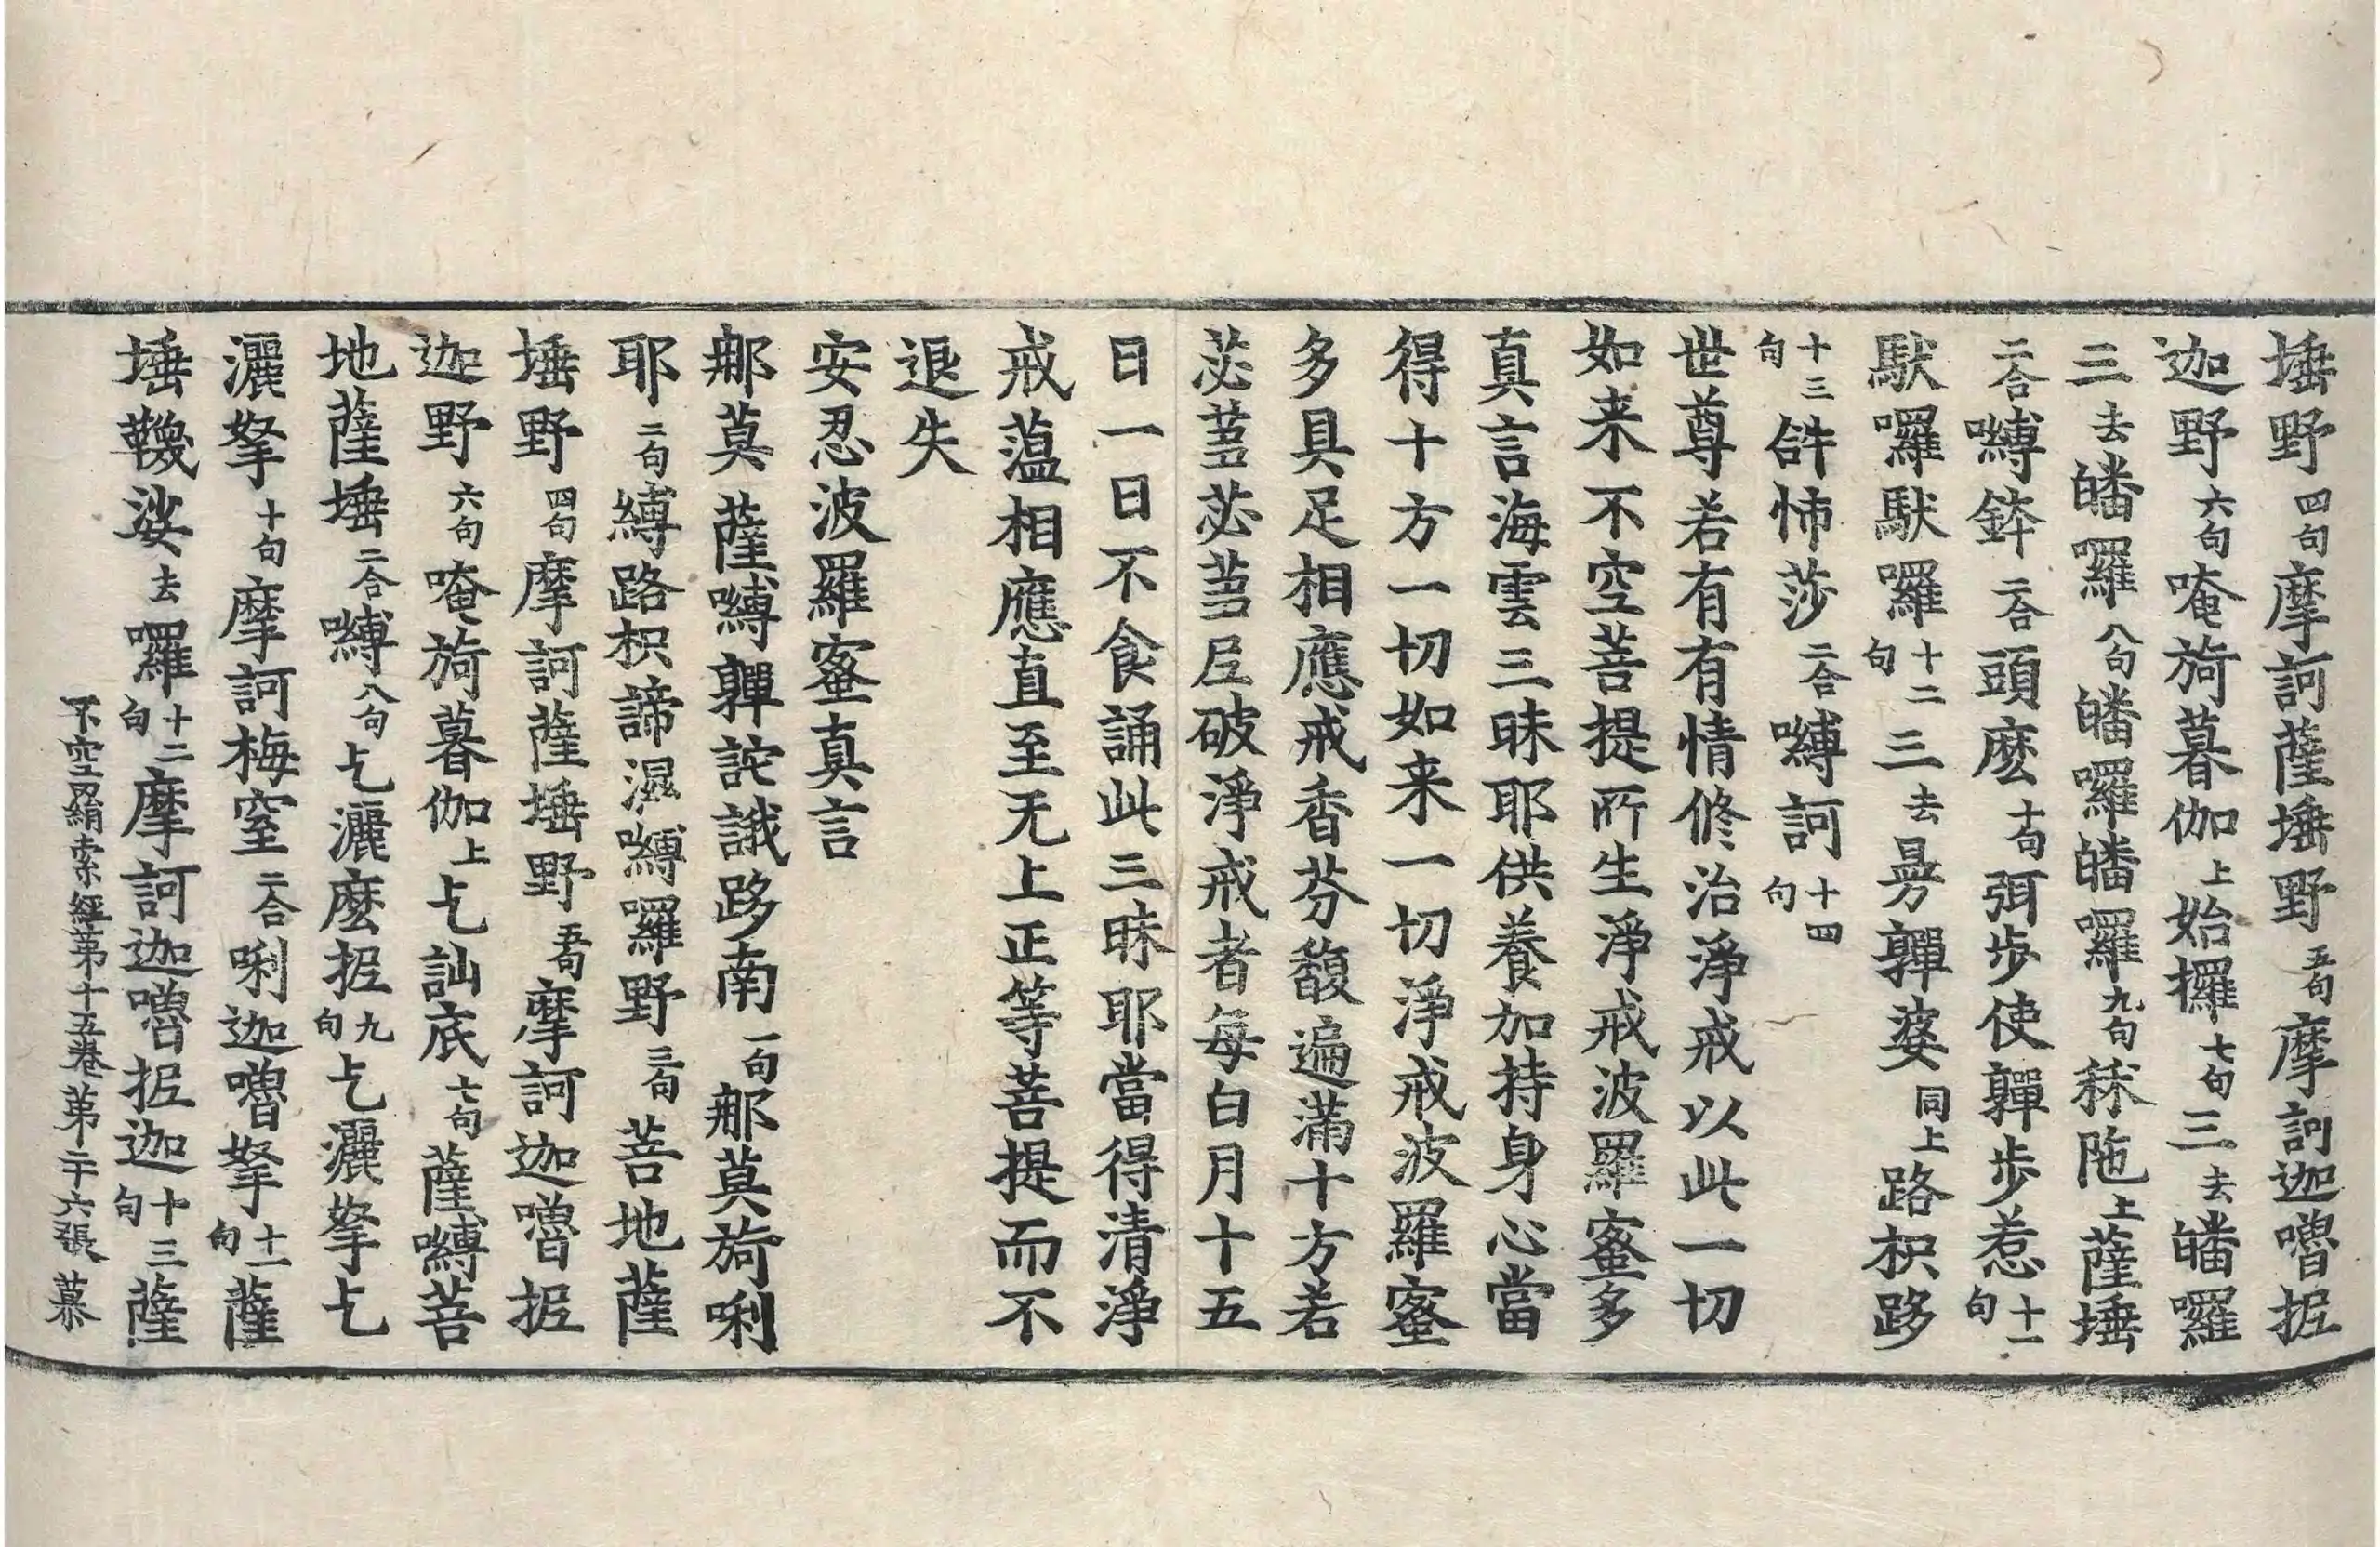 埵野四句摩訶薩埵野五句摩訶迦嚕抳
迦野六句唵旖暮伽上始攞七句三去皤囉
三去皤囉八句皤囉皤囉九句秣陁上薩埵
二合嚩鉢二合頭麽十句弭步使亸步惹十一句
馱囉馱囉十二句三去曼亸婆同上路枳
十三句𤙖怖莎二合嚩訶十四句
世尊若有有情修治淨戒以此一切
如来不空菩提所生淨戒波羅蜜多
真言海雲三昧耶供養加持身心當
得十方一切如来一切淨戒波羅蜜
多具足相應戒香芬馥遍滿十方若
苾蒭苾蒭尼破淨戒者每白月十五
日一日不食誦此三昧耶當得清淨
戒蘊相應直至无上正等菩提而不
退失
安忍波羅蜜真言
那莫薩嚩亸詑誐路南一句那莫旖唎
耶二句縛路枳諦濕嚩羅野三句菩地薩
埵野四句摩訶薩埵野五句摩訶迦嚕抳
迦野六句唵旖暮伽上乞訕底七句薩嚩菩
地薩埵二合嚩八句乞灑麽抳九句乞灑拏乞
灑拏十句摩訶梅窒二合唎迦嚕拏十一句薩
埵韈娑去羅十二句摩訶迦嚕抳迦十三句薩
不空罥索經第十五卷第二十六張 慕